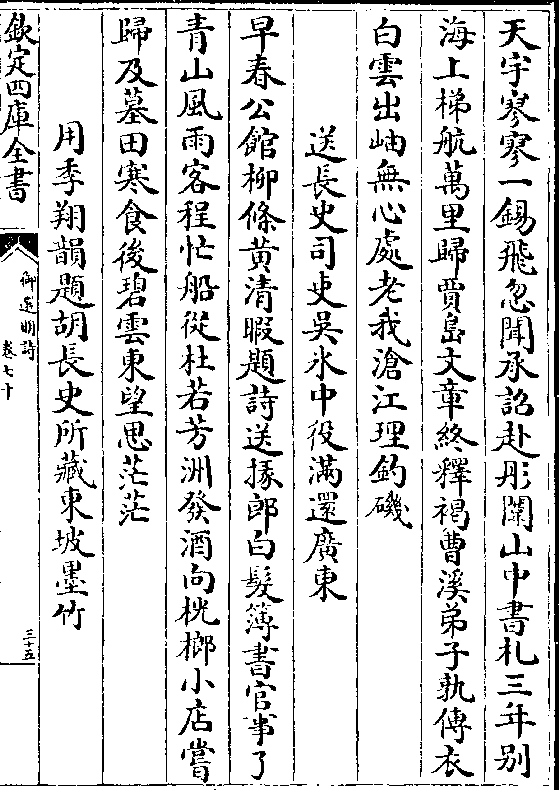 天宇寥寥一錫飛忽聞承詔赴彤闈山中書札三年别
海上梯航萬里歸賈島文章終釋褐曹溪弟子孰傳衣
白雲出岫無心處老我滄江理釣磯
送長史司吏吳氷中役滿還廣東
早春公館柳條黄清暇題詩送掾郎白髮簿書官事了
青山風雨客程忙船從杜若芳洲發酒向桄榔小店嘗
歸及墓田寒食後碧雲東望思茫茫
用季翔韻題胡長史所藏東坡墨竹
欽定四庫全書
御選明詩
卷七十
三十五